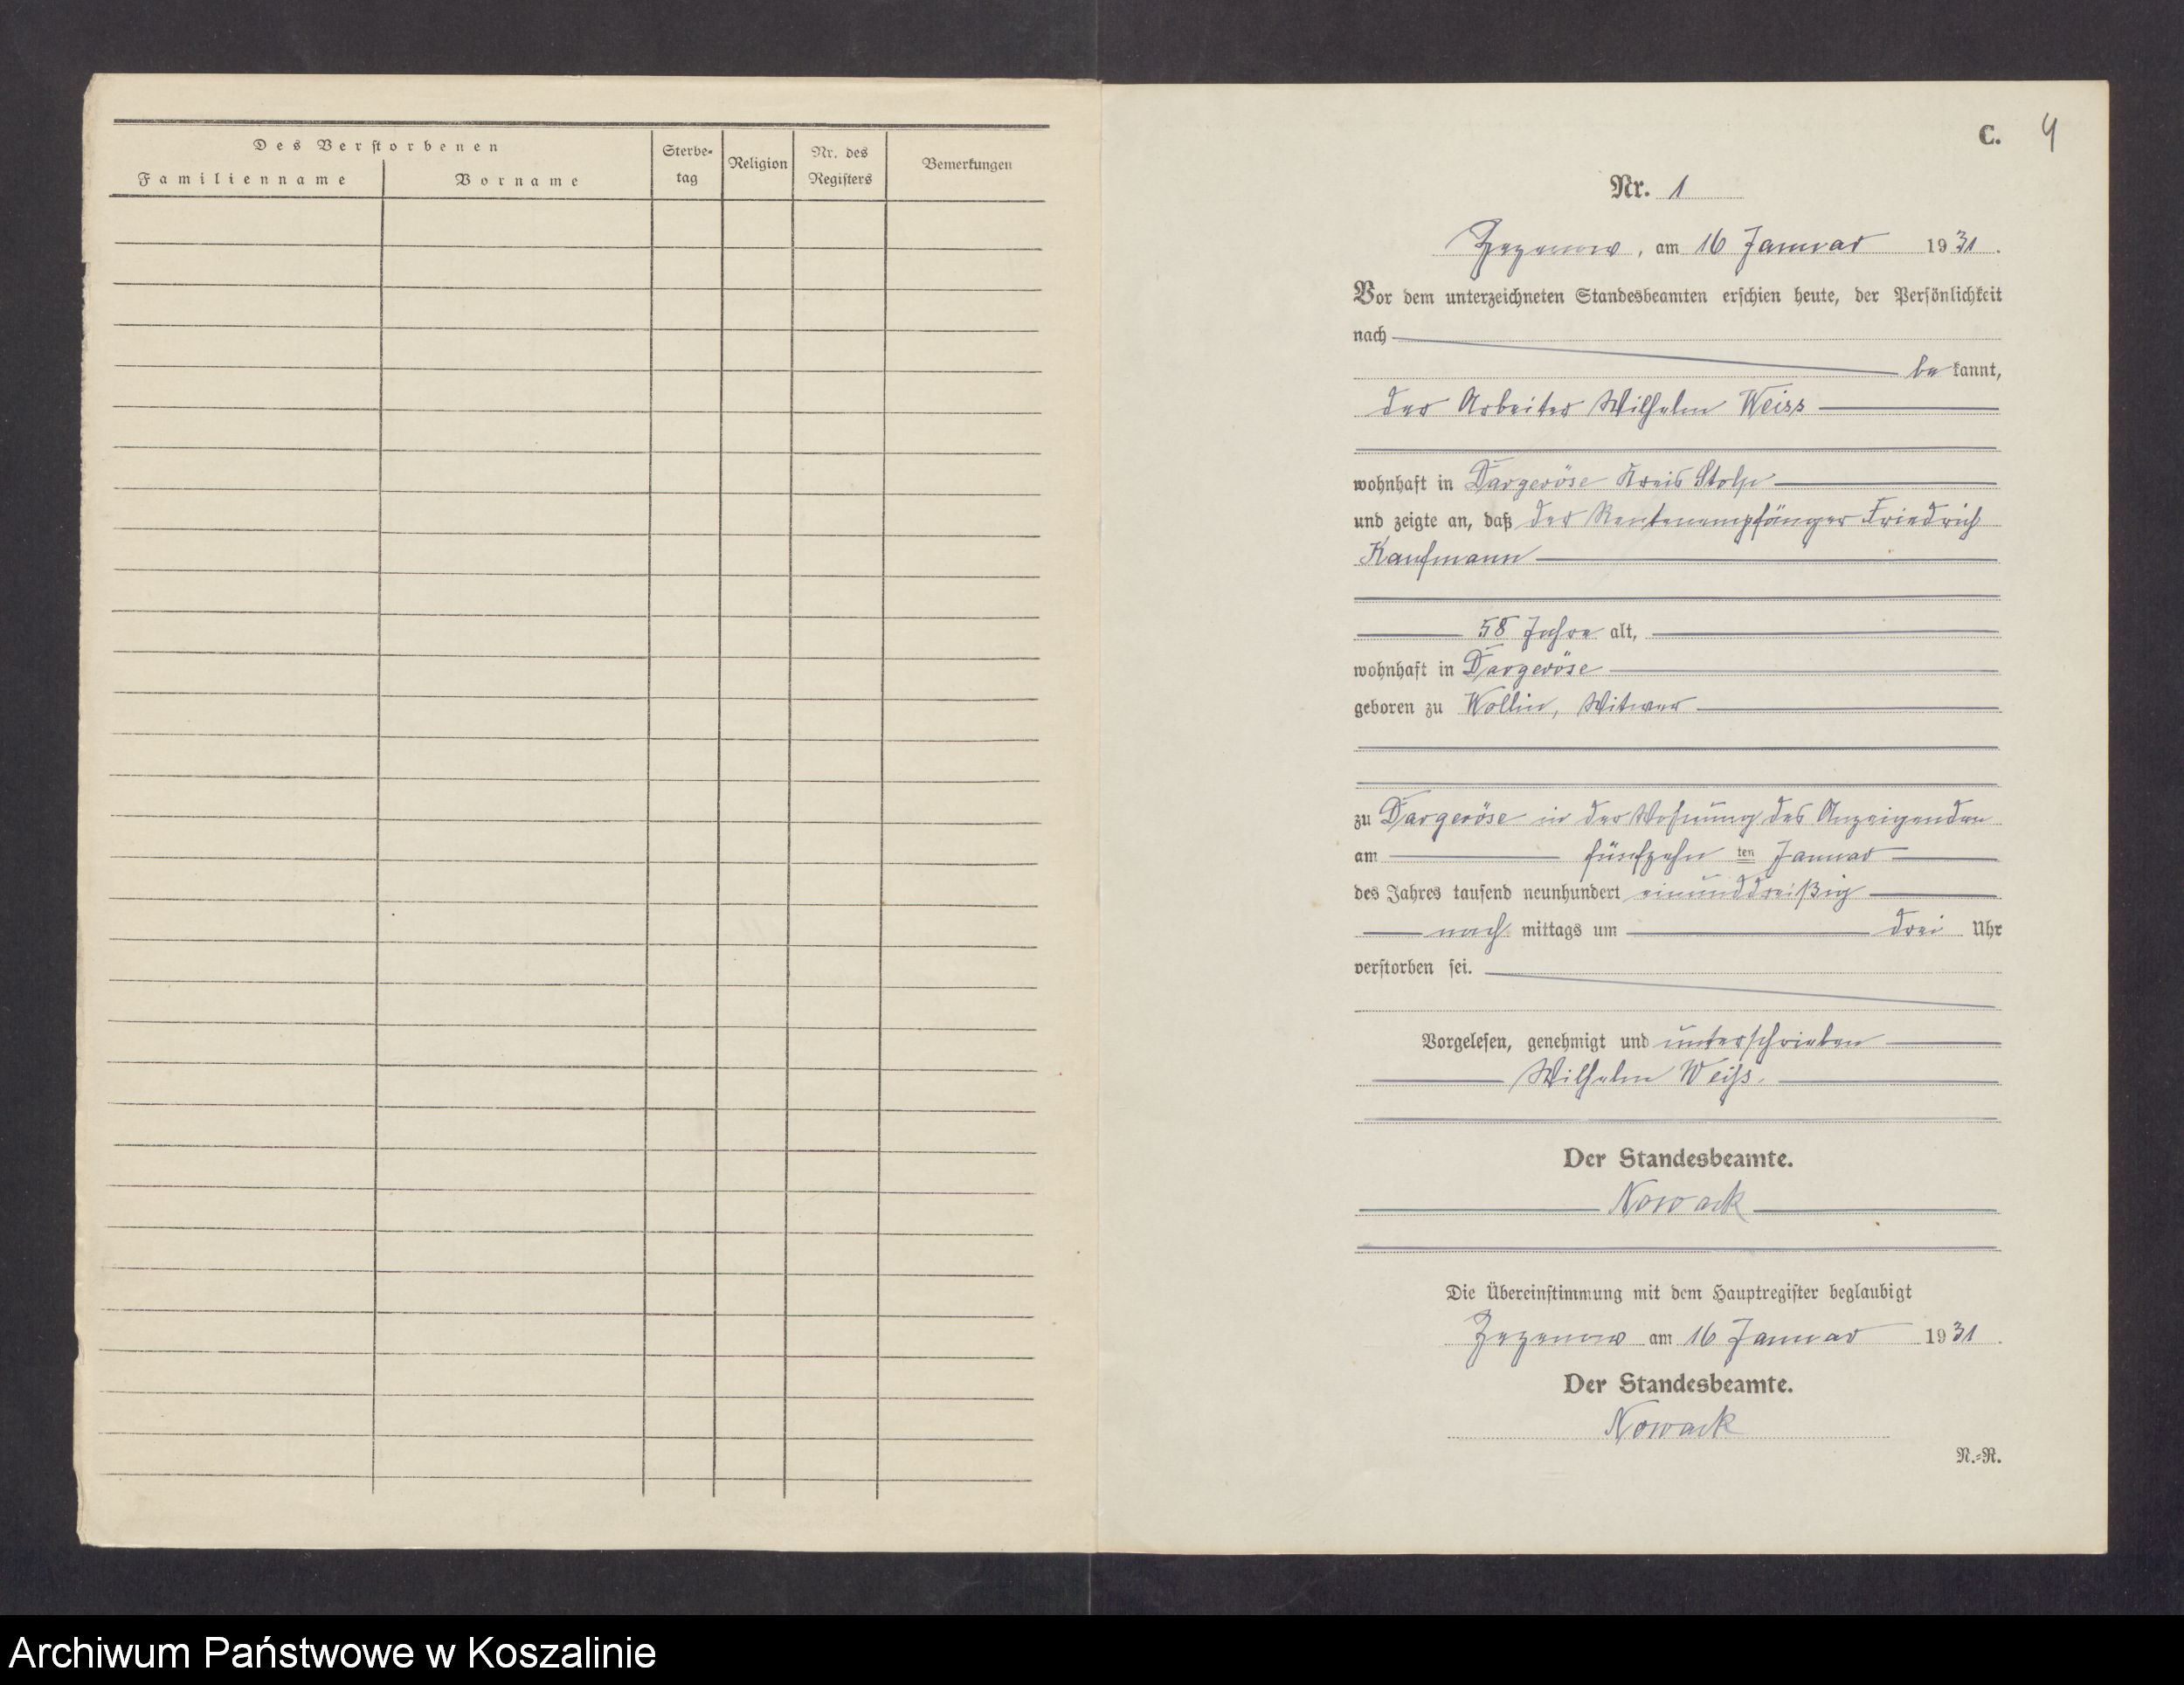 Des Verstorbenen
Familienname
Vorname
Sterbe-
tag
Religion
Nr. des
Registers
Bemerkungen
C. 4
Nr. 1
Zezenow, am 16 Januar 1931.
Vor dem unterzeichneten Standesbeamten erschien heute, der Persönlichkeit
nach
bekannt,
der Arbeiter Wilhelm Weiss
wohnhaft in Dargeröse Kreis Stolp
und zeigte an, daß der Rentenempfänger Friedrich
Kaufmann
58 Jahre alt,
wohnhaft in Dargeröse
geboren zu Wollin, Witwer
zu Dargeröse in der Wohnung des Anzeigenden
am fünfzehn ten Januar
des Jahres tausend neunhundert einunddreißig
nach mittags um drei Uhr
verstorben sei.
Vorgelesen, genehmigt und unterschrieben
Wilhelm Weiß.
Der Standesbeamte.
Nowack
Die Übereinstimmung mit dem Hauptregister beglaubigt
Zezenow am 16 Januar 1931.
Der Standesbeamte.
Nowack
N.-R.
Archiwum Państwowe w Koszalinie